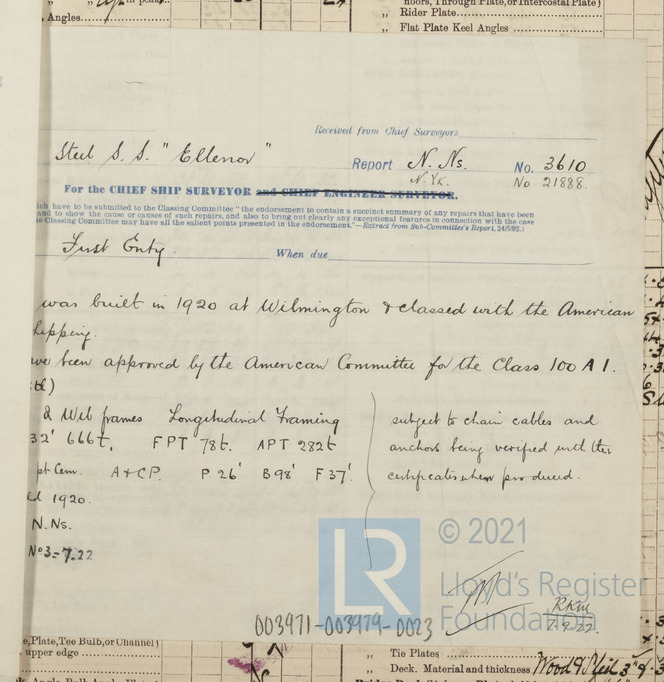 noors, Through Plate, or Intercostal Plate)
„ Rider Plate
Angles
„ Flat Plate Keel Angles
Received from Chief Surveyors
Steel S.S. "Ellenor"
Report N. Ns. No. 3610
N. Yk. No 21888.
For the CHIEF SHIP SURVEYOR and CHIEF ENGINEER SURVEYOR.
ich have to be submitted to the Classing Committee "the endorsement to contain a succinct summary of any repairs that have been
and to show the cause or causes of such repairs, and also to bring out clearly any exceptional features in connection with the case
e Classing Committee may have all the salient points presented in the endorsement."—Extract from Sub-Committee's Report, 24/5/93.)
First Entry When due
was built in 1920 at Wilmington & classed with the American
hipping.
ve been approved by the American Committee for the Class 100 A 1.
& Web frames Longitudinal Framing
32' 666t, FPT 78t. APT 282t
pt Cem. A&CP. P. 26' B 98' F 37'.
ed 1920.
N. Ns.
No 3-7.22
subject to chain cables and
anchors being verified with the
certificates when produced.
LR © 2021
Lloyd's Register
Foundation
7.9.22
003971-003979-0023
e, Plate, Tee Bulb, or Channel)
upper edge
„ Tie Plates
„ Deck. Material and thickness Wood & Steel 3"